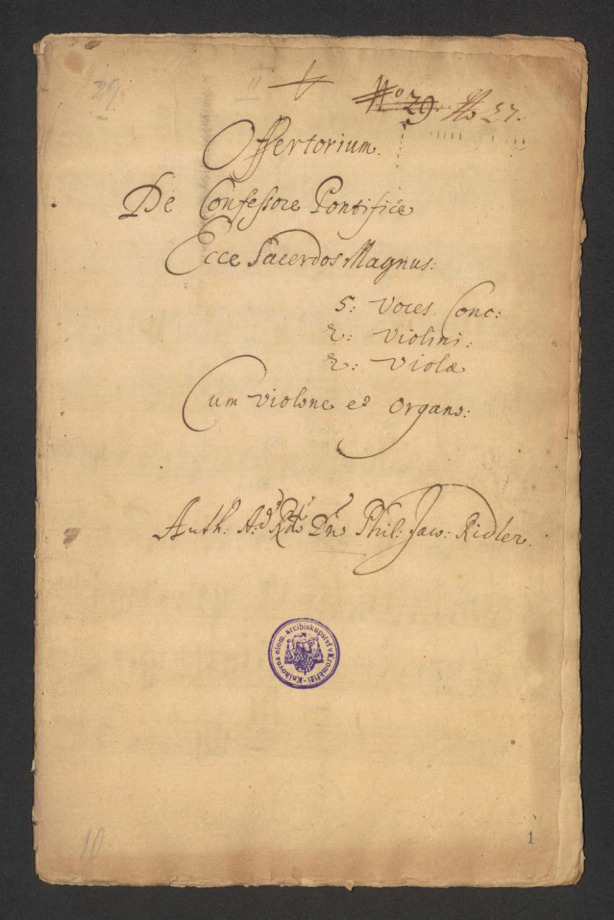 29. II
No 29. No 27.
Offertorium.
De Confessore Pontifice
Ecce Sacerdos Magnus:
5: Voces Conc:
2: Violini:
2: Violæ
Cum violone et Organo:
Auth: A:d Rdo Dno Phil: Jaco: Ridler.
Knihovna olom. arcibiskupství v Kroměříži
1
10